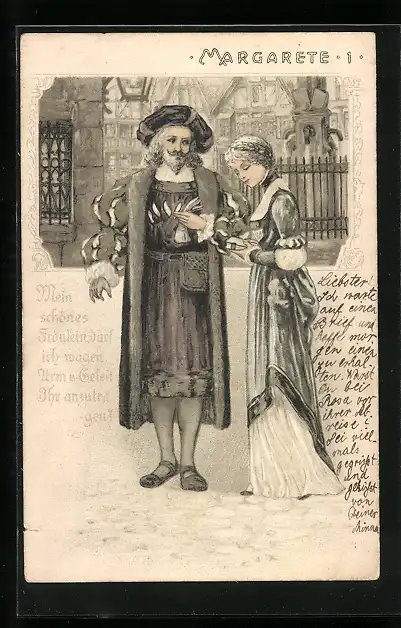 · MARGARETE · 1 ·
Mein
schönes
Fräulein, darf
ich wagen,
Arm u. Geleit
Ihr anzutra-
gen?
Liebster!
Ich warte
auf einen
Brief und
hoffe mor
gen einen
zu erhal-
ten. Warst
Du bei
Rosa vor
ihrer Ab-
reise?
Sei viel
mals
gegrüßt
und
geküßt
von
Deiner
Minna